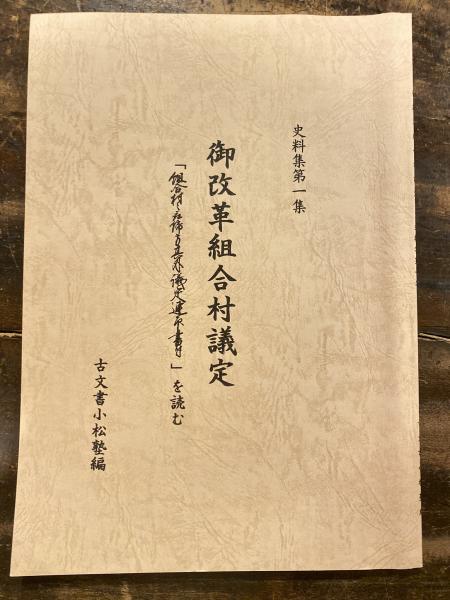 史料集第一集
御改革組合村議定
「組合村々取締方其外議定連印書付」を読む
古文書小松塾編